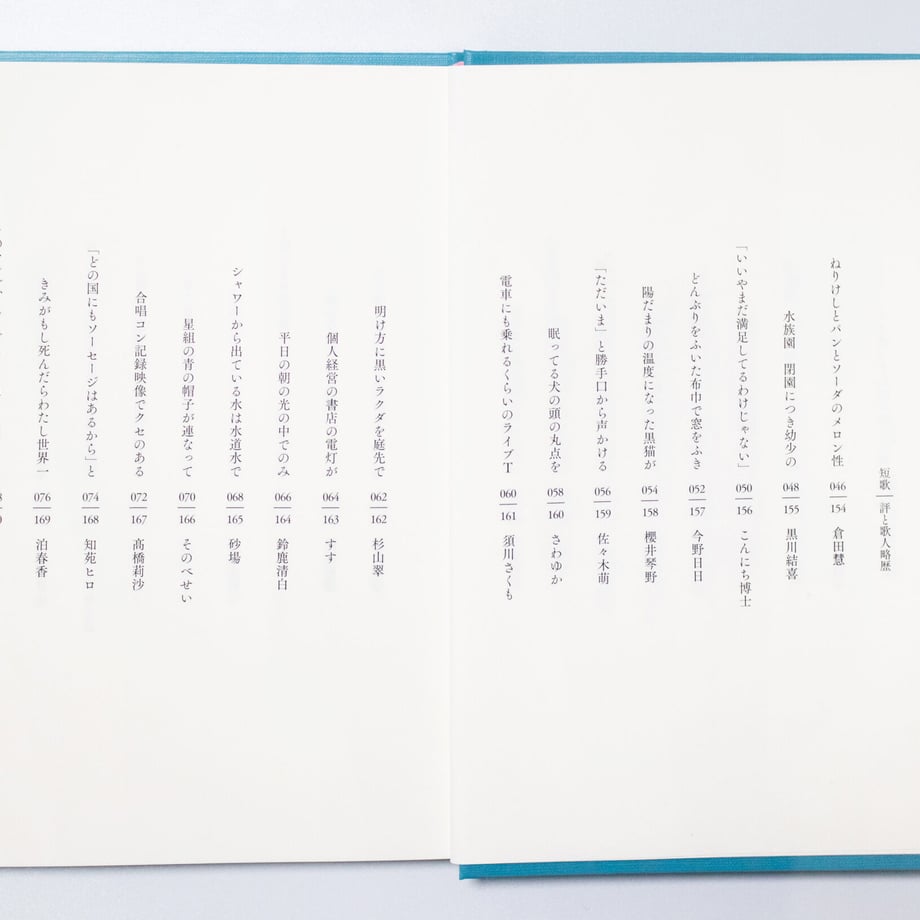 短歌|評と歌人略歴
ねりけしとパンとソーダのメロン性 046|154 倉田慧
水族園 閉園につき幼少の 048|155 黒川結喜
「いいやまだ満足してるわけじゃない」 050|156 こんにち博士
どんぶりをふいた布巾で窓をふき 052|157 今野日日
陽だまりの温度になった黒猫が 054|158 櫻井琴野
「ただいま」と勝手口から声かける 056|159 佐々木萌
眠ってる犬の頭の丸点を 058|160 さわゆか
電車にも乗れるくらいのライブT 060|161 須川さくも
明け方に黒いラクダを庭先で 062|162 杉山翠
個人経営の書店の電灯が 064|163 すす
平日の朝の光の中でのみ 066|164 鈴鹿清白
シャワーから出ている水は水道水で 068|165 砂場
星組の青の帽子が連なって 070|166 そのべせい
合唱コン記録映像でクセのある 072|167 髙橋莉沙
「どの国にもソーセージはあるから」と 074|168 知苑ヒロ
きみがもし死んだらわたし世界一 076|169 泊春香